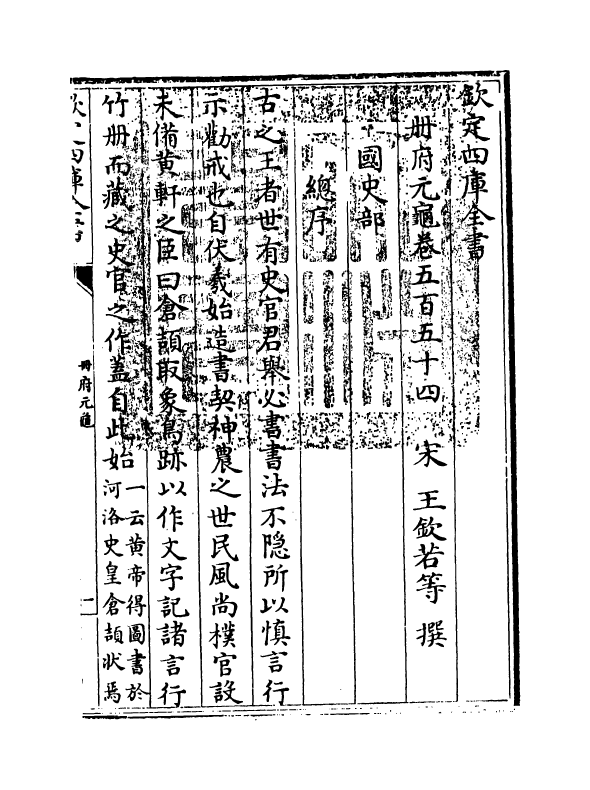 欽定四庫全書
冊府元龜卷五百五十四　宋　王欽若等　撰
國史部
總序
古之王者世有史官君舉必書書法不隱所以慎言行
示勸戒也自伏羲始造書契神農之世民風尚樸官設
未備黄軒之臣曰倉頡取象鳥跡以作文字記諸言行
竹冊而藏之史官之作蓋自此始一云黄帝得圖書於
河洛史皇倉頡狀焉
冊府元龜
一